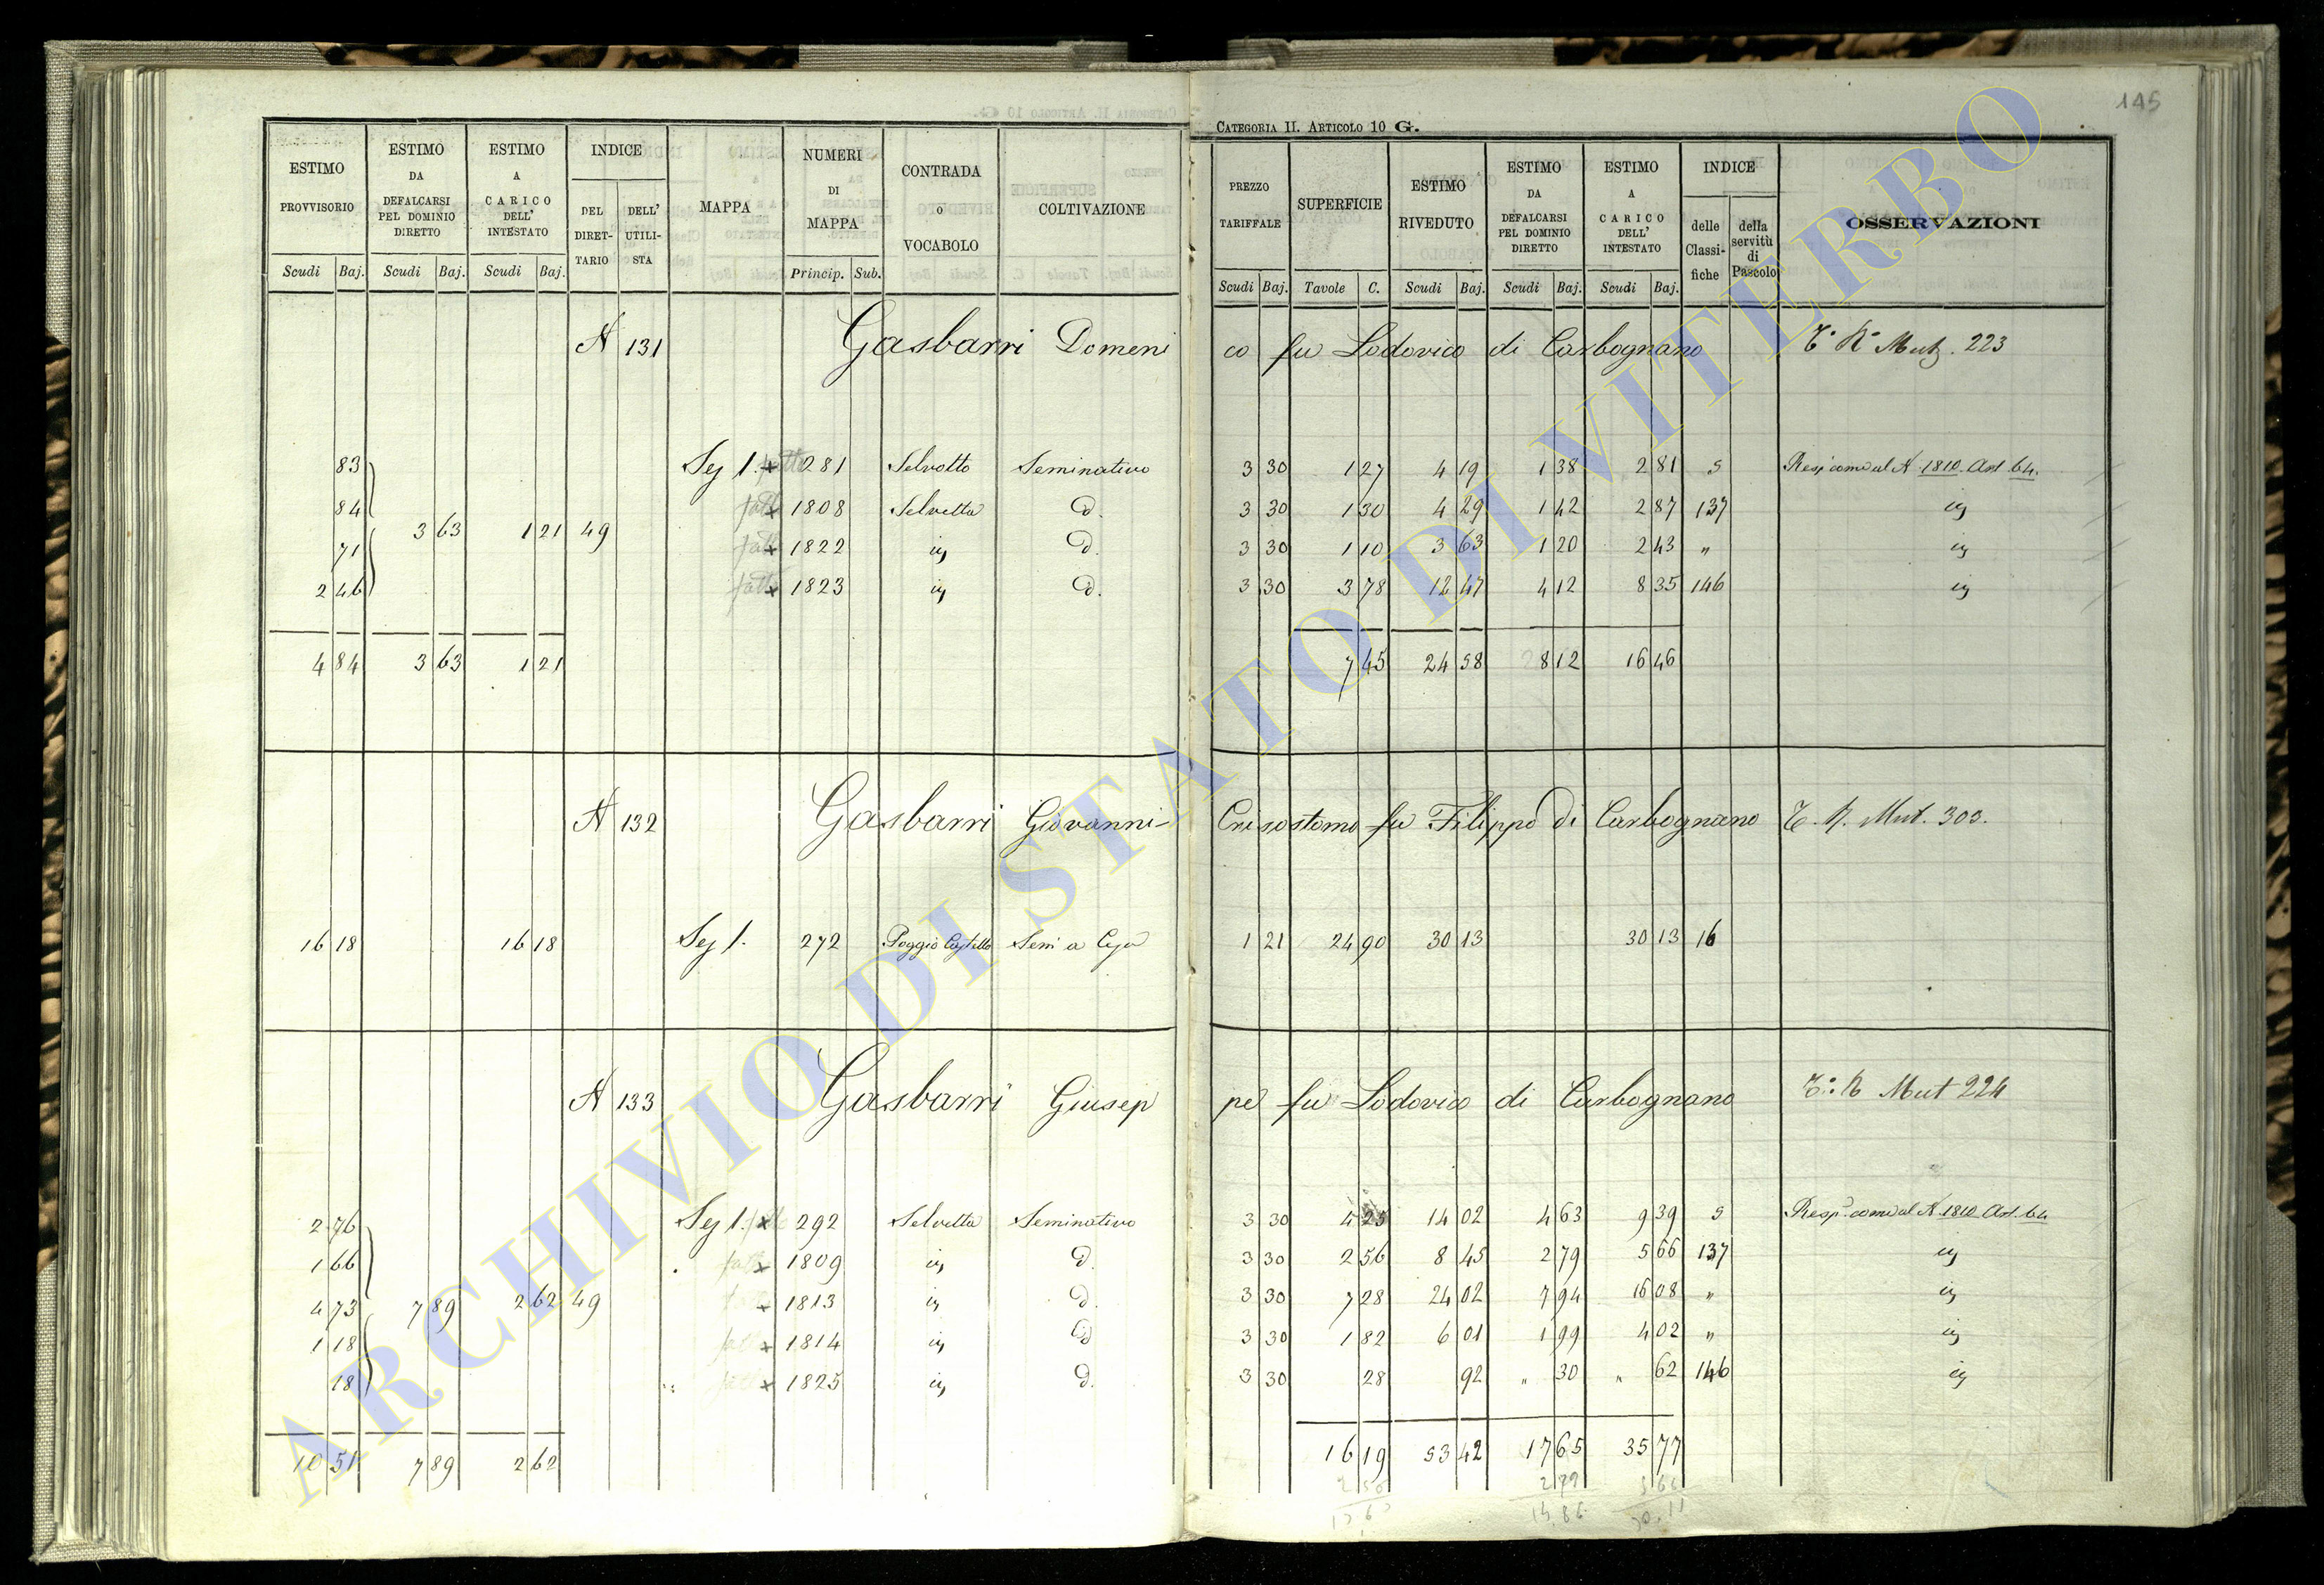 145
CATEGORIA II. ARTICOLO 10 G.
ESTIMO PROVVISORIO | ESTIMO DA DEFALCARSI PEL DOMINIO DIRETTO | ESTIMO A CARICO DELL' INTESTATO | INDICE | MAPPA | NUMERI DI MAPPA | CONTRADA O VOCABOLO | COLTIVAZIONE | PREZZO TARIFFALE | SUPERFICIE | ESTIMO RIVEDUTO | ESTIMO DA DEFALCARSI PEL DOMINIO DIRETTO | ESTIMO A CARICO DELL' INTESTATO | INDICE | OSSERVAZIONI
DEL DIRETTARIO | DELL' UTILISTA | delle Classifiche | della servitù di Pascolo
Scudi Baj. | Scudi Baj. | Scudi Baj. | Princip. Sub. | Scudi Baj. | Tavole C. | Scudi Baj. | Scudi Baj. | Scudi Baj.
N 131 Gasbarri Domenico fu Lodovico di Carbognano Mut. 223
83 | Sez 1. x 281 | Selvotta | Seminativo | 3 30 | 1 27 | 4 19 | 1 38 | 2 81 | 5 | Resp come al N. 1810. Art. 64.
84 | x 1808 | Selvetta | d. | 3 30 | 1 30 | 4 29 | 1 42 | 2 87 | 137
3 63 | 1 21 | 49
71 | x 1822 | d. | 3 30 | 1 10 | 3 63 | 1 20 | 2 43 | "
2 46 | x 1823 | d. | 3 30 | 3 78 | 12 47 | 4 12 | 8 35 | 146
4 84 | 3 63 | 1 21 | 7 45 | 24 58 | 8 12 | 16 46
N 132 Gasbarri Giovanni-Crisostomo fu Filippo di Carbognano Mut. 303.
16 18 | 16 18 | Sez 1. | 272 | Poggio Castello | 1 21 | 24 90 | 30 13 | 30 13 | 16
N 133 Gasbarri Giuseppe fu Lodovico di Carbognano Mut 224
2 76 | Sez 1. x 292 | Selvetta | Seminativo | 3 30 | 4 25 | 14 02 | 4 63 | 9 39 | 5 | Resp. come al N. 1810 Art. 64
1 66 | x 1809 | d. | 3 30 | 2 56 | 8 45 | 2 79 | 5 66 | 137
4 73 | 7 89 | 2 62 | 49 | x 1813 | d. | 3 30 | 7 28 | 24 02 | 7 94 | 16 08 | "
1 18 | x 1814 | d | 3 30 | 1 82 | 6 01 | 1 99 | 4 02 | "
18 | x 1825 | d. | 3 30 | 28 | 92 | " 30 | " 62 | 146
10 51 | 7 89 | 2 62 | 16 19 | 53 42 | 17 65 | 35 77
2 79
14.86
30.11
ARCHIVIO DI STATO DI VITERBO